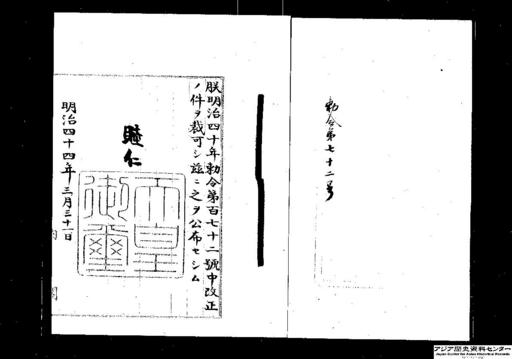 勅令第七十二号
朕明治四十年勅令第百七十二號中改正
ノ件ヲ裁可シ茲ニ之ヲ公布セシム
睦仁
天皇
御璽
明治四十四年三月三十一日
内
閣
アジア歴史資料センター
Japan Center for Asian Historical Records